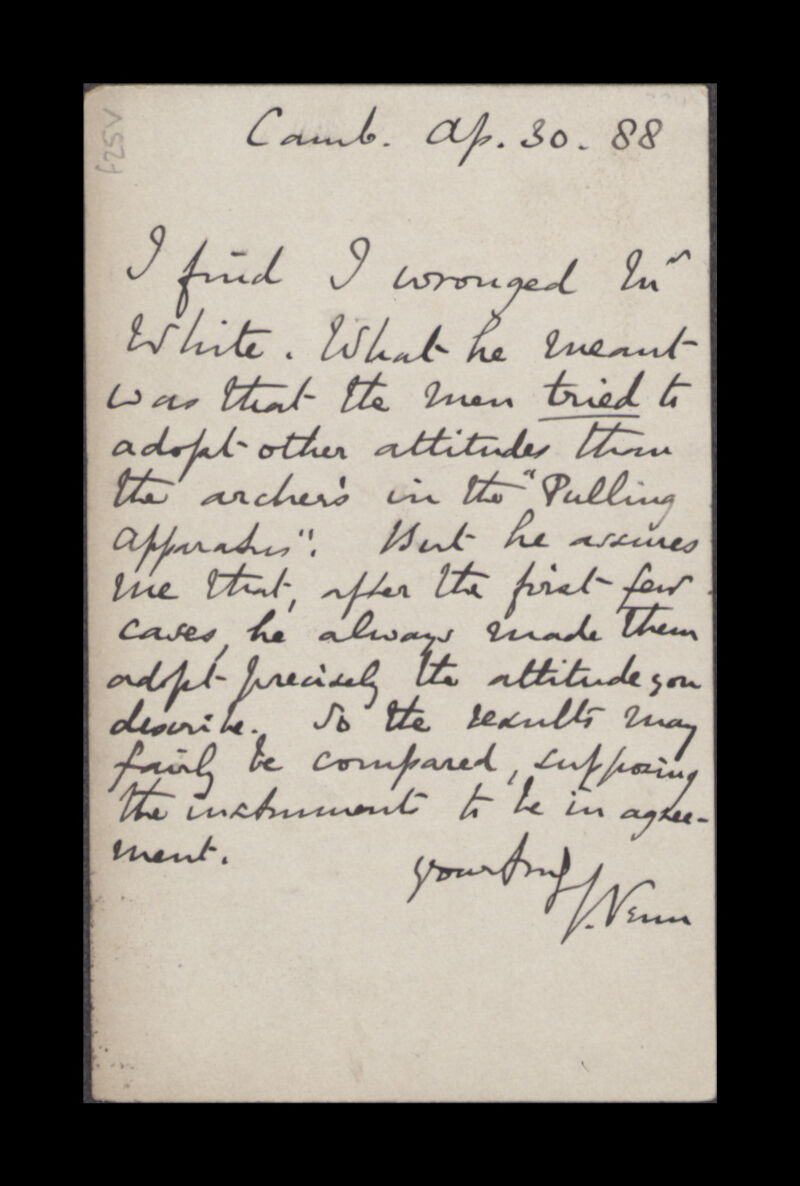 f25v
Camb. Ap. 30. 88
I find I wronged Mr
White. What he meant
was that the men tried to
adopt other attitudes than
the archer's in the "Pulling
Apparatus". But he assures
me that, after the first few
cases, he always made them
adopt precisely the attitude you
describe. So the results may
fairly be compared, supposing
the instruments to be in agree-
ment.
yours truly
J. Venn